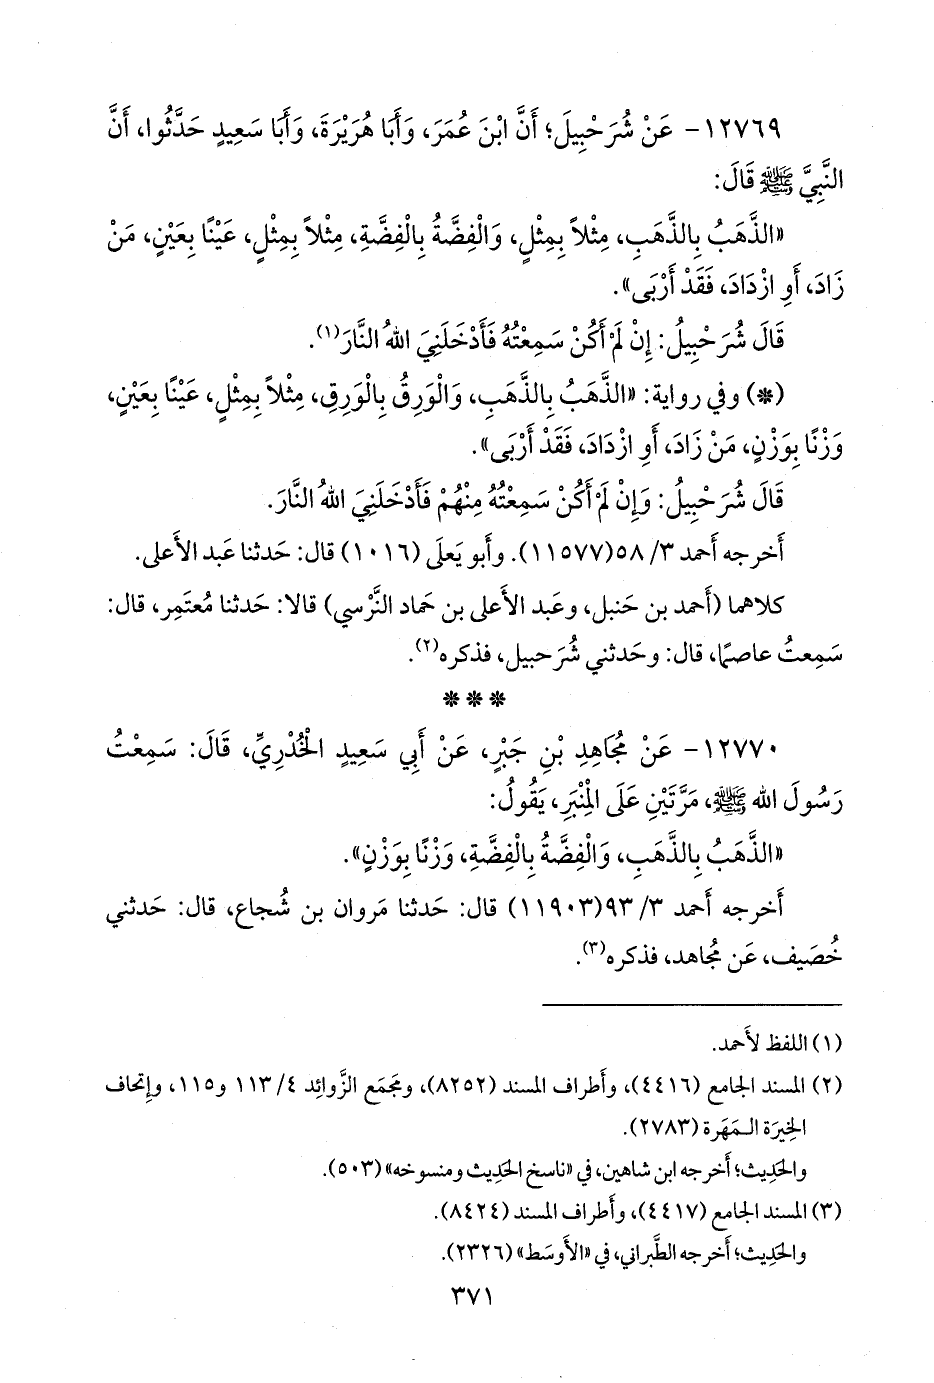 ١٢٧٦٩- عَنْ شُرَحْبِيلَ؛ أَنَّ ابْنَ عُمَرَ، وَأَبَا هُرَيْرَةَ، وَأَبَا سَعِيدٍ حَدَّثُوا، أَنَّ
النَّبِيَّ ﷺ قَالَ:
«الذَّهَبُ بِالذَّهَبِ، مِثْلاً بِمِثْلٍ، وَالْفِضَّةُ بِالْفِضَّةِ، مِثْلاً بِمِثْلٍ، عَيْنًا بِعَيْنٍ، مَنْ
زَادَ، أَوِ ازْدَادَ، فَقَدْ أَرْبَى».
قَالَ شُرَحْبِيلُ: إِنْ لَمْ أَكُنْ سَمِعْتُهُ فَأَدْخَلَنِيَ اللهُ النَّارَ(١).
(*) وفي رواية: «الذَّهَبُ بِالذَّهَبِ، وَالْوَرِقُ بِالْوَرِقِ، مِثْلاً بِمِثْلٍ، عَيْنًا بِعَيْنٍ،
وَزْنًا بِوَزْنٍ، مَنْ زَادَ، أَوِ ازْدَادَ، فَقَدْ أَرْبَى».
قَالَ شُرَحْبِيلُ: وَإِنْ لَمْ أَكُنْ سَمِعْتُهُ مِنْهُمْ فَأَدْخَلَنِيَ اللهُ النَّارَ.
أَخرجه أَحمد ٣/ ٥٨(١١٥٧٧). وأَبو يَعلَى (١٠١٦) قال: حَدثنا عَبد الأَعلى.
كلاهما (أَحمد بن حَنبل، وعَبد الأَعلى بن حَماد النَّرْسي) قالا: حَدثنا مُعتَمِر، قال:
سَمِعتُ عاصمًا، قال: وحَدثني شُرَحبيل، فذكره(٢).
* * *
١٢٧٧٠- عَنْ مُجَاهِدِ بْنِ جَبْرٍ، عَنْ أَبِي سَعِيدٍ الْخُدْرِيِّ، قَالَ: سَمِعْتُ
رَسُولَ الله ﷺ، مَرَّتَيْنِ عَلَى الْمِنْبَرِ، يَقُولُ:
«الذَّهَبُ بِالذَّهَبِ، وَالْفِضَّةُ بِالْفِضَّةِ، وَزْنًا بِوَزْنٍ».
أَخرجه أَحمد ٣/ ٩٣(١١٩٠٣) قال: حَدثنا مَروان بن شُجاع، قال: حَدثني
خُصَيف، عَن مُجاهد، فذكره(٣).
(١) اللفظ لأَحمد.
(٢) المسند الجامع (٤٤١٦)، وأَطراف المسند (٨٢٥٢)، ومَجمَع الزَّوائِد ٤/ ١١٣ و١١٥، وإِتحاف
الخِيرَة المَهَرة (٢٧٨٣).
والحَدِيث؛ أَخرجه ابن شاهين، في «ناسخ الحَدِيث ومنسوخه» (٥٠٣).
(٣) المسند الجامع (٤٤١٧)، وأَطراف المسند (٨٤٢٤).
والحَدِيث؛ أَخرجه الطَّبراني، في «الأَوسَط» (٢٣٢٦).
٣٧١